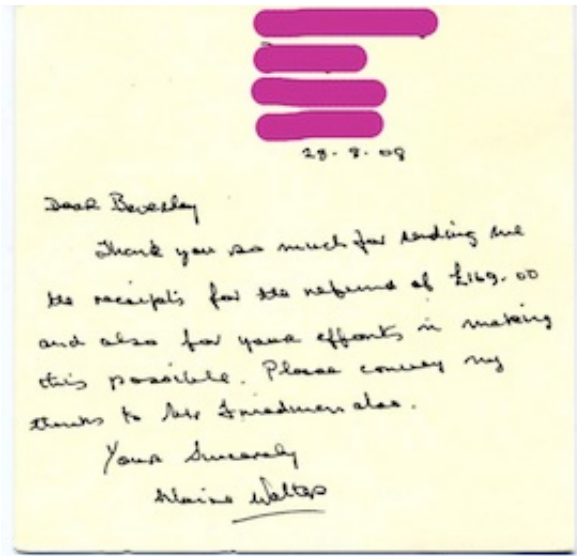 28-8-08
Dear Beverley
Thank you so much for sending me
the receipts for the refund of £169.00
and also for your efforts in making
this possible. Please convey my
thanks to Mr Friedman also.
Yours Sincerely
Elaine Walters